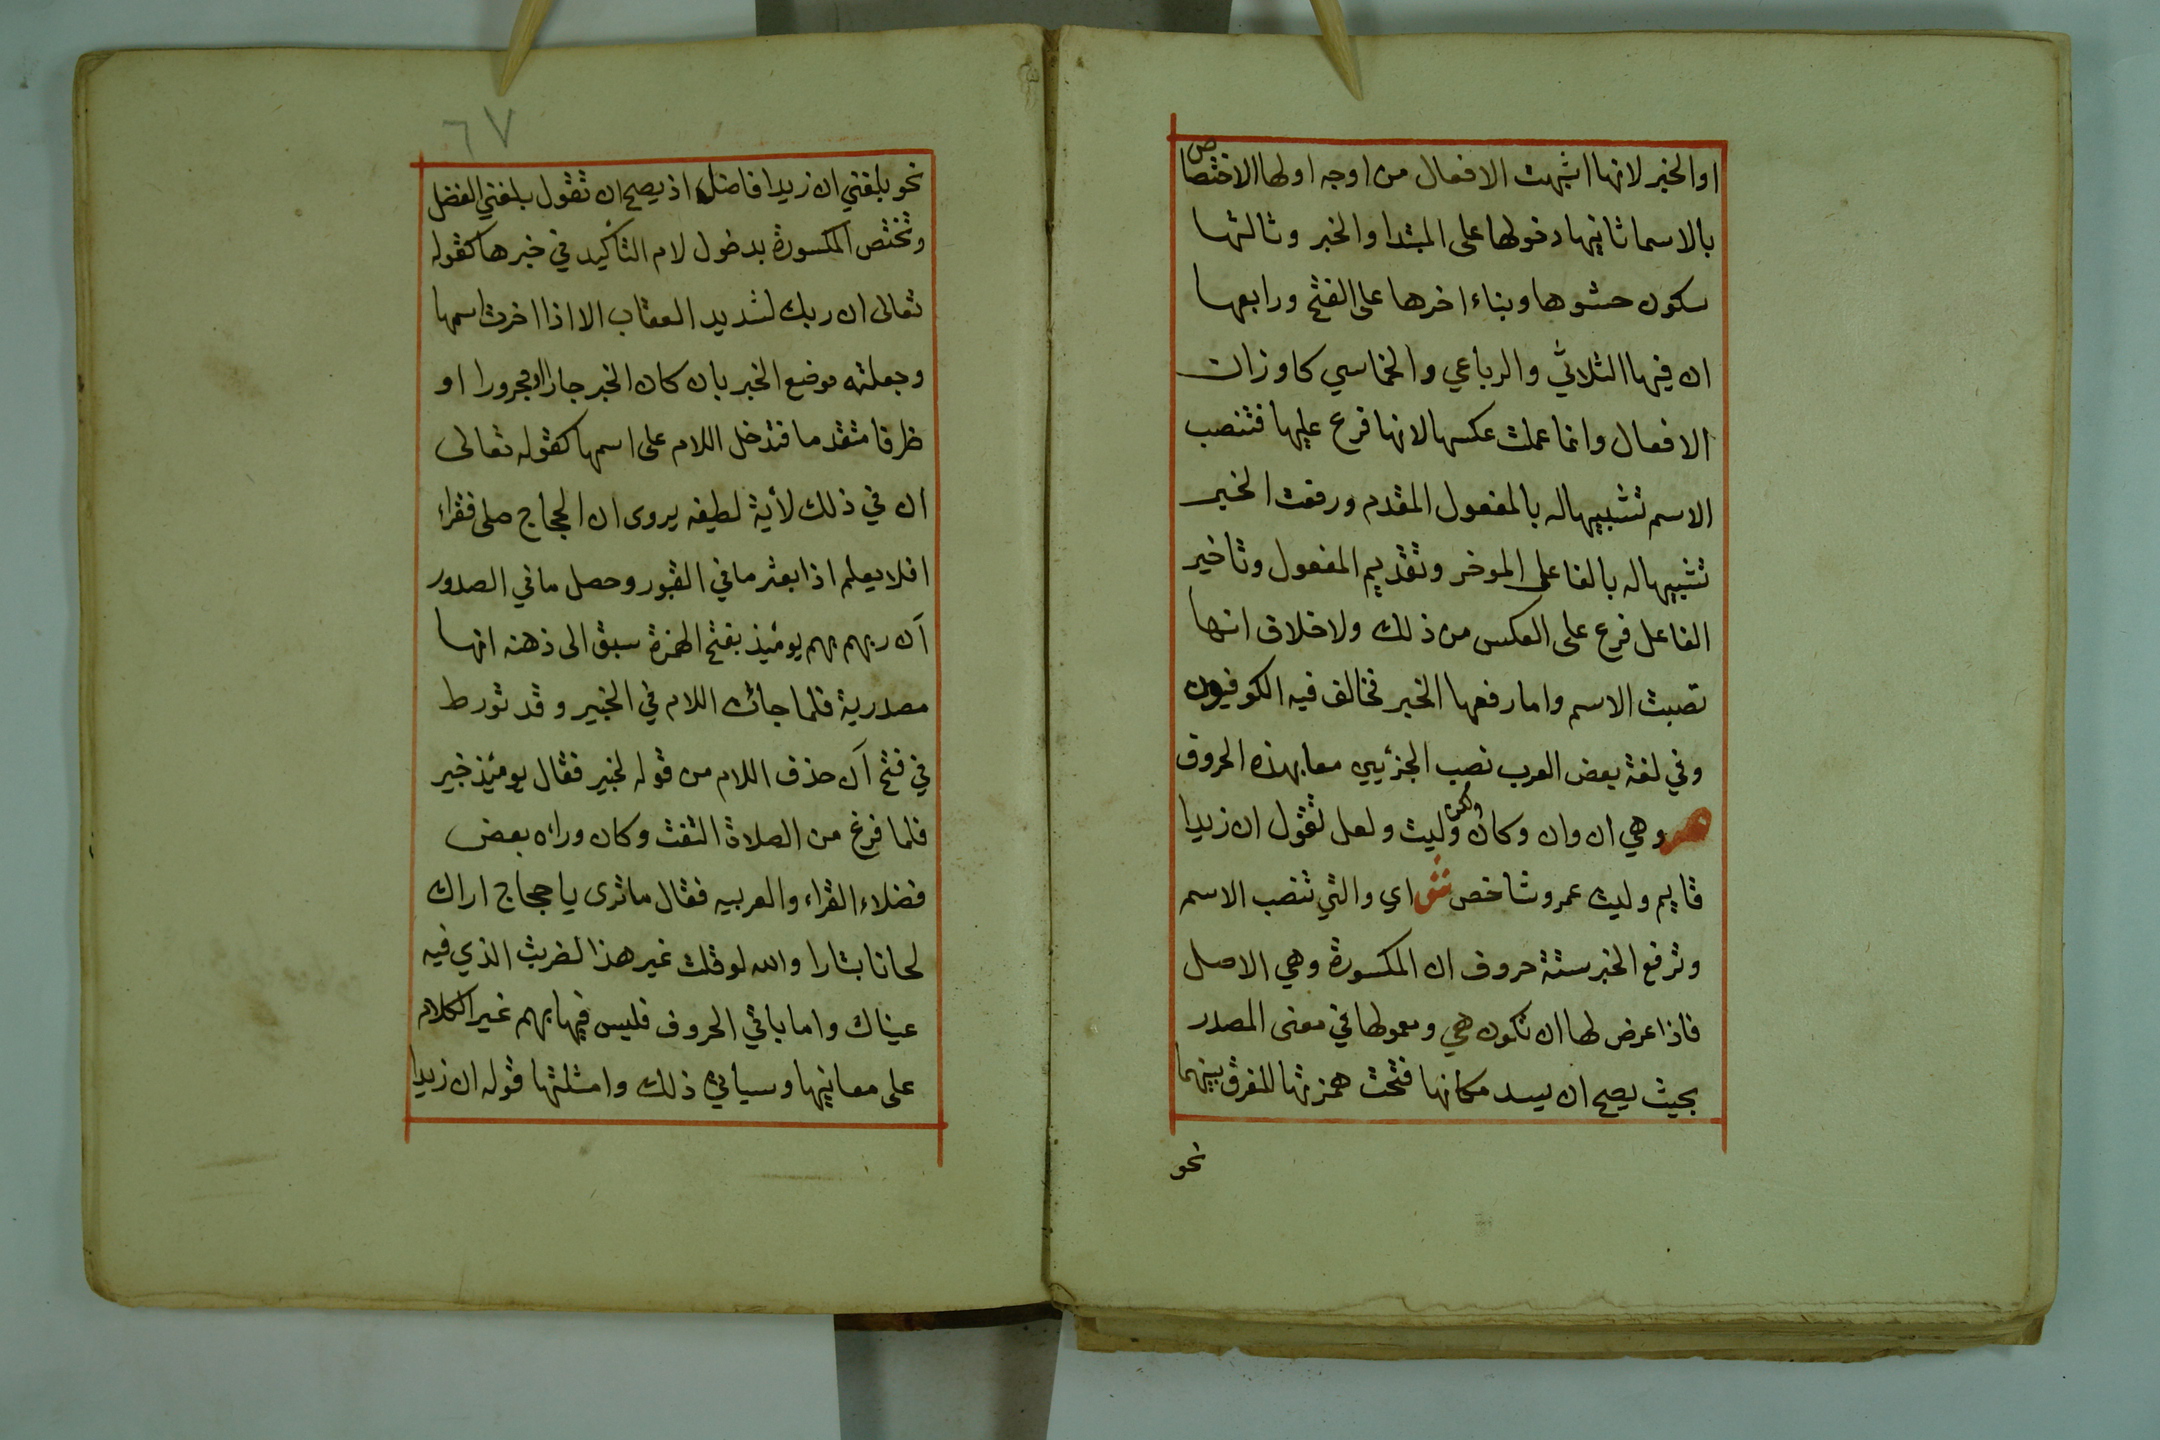 او الخبر لانها اشبهت الافعال من اوجه اولها الاختصاص
بالاسما ثانيها دخولها على المبتدا والخبر وثالثها
سكون حشوها وبناء اخرها على الفتح ورابعها
ان فيها الثلاثي والرباعي والخماسي كاوزان
الافعال وانما عملت عكسها لانها فرع عليها فتنصب
الاسم تشبيها له بالمفعول المقدم ورفعت الخبر
تشبيها له بالفاعل الموخر وتقديم المفعول وتاخير
الفاعل فرع على العكس من ذلك ولا خلاف انها
نصبت الاسم واما رفعها الخبر فخالف فيه الكوفيون
وفي لغة بعض العرب نصب الجزئيين معا بهذه الحروف
ص وهي ان وان وكان ولكن وليت ولعل تقول ان زيدا
قايم وليت عمرو شاخص ش اي والتي تنصب الاسم
وترفع الخبر ستة حروف ان المكسورة وهي الاصل
فاذا عرض لها ان تكون هي ومعمولها في معنى المصدر
بحيث يصح ان يسد مكانها فتحت همزتها للفرق بينهما
نحو
٦٧
نحو بلغني ان زيدا فاضل اذ يصح ان تقول بلغني الفضل
وتختص المكسورة بدخول لام التأكيد في خبرها كقوله
تعالى ان ربك لشديد العقاب الا اذا اخرت اسمها
وجعلته موضع الخبر بان كان الخبر جارا ومجرورا او
ظرفا متقدما فتدخل اللام على اسمها كقوله تعالى
ان في ذلك لأية لطيفه يروى ان الحجاج صلى فقراء
افلا يعلم اذا بعثر ما في القبور وحصل ما في الصدور
أن ربهم بهم يومئيذ بفتح الهمزة سبق الى ذهنه انها
مصدرية فلما جائت اللام في الخبير وقد تورط
في فتح أن حذف اللام من قوله لخبير فقال يومئيذ خبير
فلما فرغ من الصلاة التفت وكان وراه بعض
فضلاء القراء والعربيه فقال ما ترى يا حجاج اراك
لحانا بتارا والله لو قلت غير هذا لضربت الذي فيه
عيناك واما باقي الحروف فليس فيها بهم غير الكلام
على معانيها وسياتي ذلك وامثلتها قوله ان زيدا